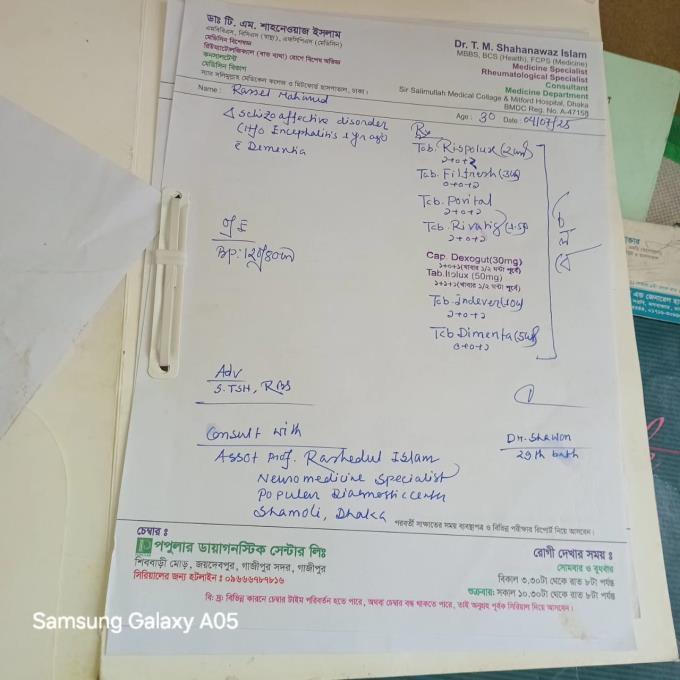 ডাঃ টি. এম. শাহনেওয়াজ ইসলাম
এমবিবিএস, বিসিএস (স্বাস্থ্য), এফসিপিএস (মেডিসিন)
মেডিসিন বিশেষজ্ঞ
রিউম্যাটোলজিক্যাল (বাত ব্যথা) রোগে বিশেষ অভিজ্ঞ
কনসালটেন্ট
মেডিসিন বিভাগ
স্যার সলিমুল্লাহ মেডিকেল কলেজ ও মিটফোর্ড হাসপাতাল, ঢাকা।
Dr. T. M. Shahanawaz Islam
MBBS, BCS (Health), FCPS (Medicine)
Medicine Specialist
Rheumatological Specialist
Consultant
Medicine Department
Sir Salimullah Medical Collage & Mitford Hospital, Dhaka
BMDC Reg. No. A-47158
Name: Rassel Mahmud Age: 30 Date: 04/07/25
Δ schizoaffective disorder
(H/o Encephalitis 1 yr ago)
c̄ Dementia
O/E
BP: 120/80
Adv
S. TSH, RBS
Consult with
Assot Prof. Rashedul Islam
Neuromedicine Specialist
Populer Diamostic center
Shamoli, Dhaka
Rx
Tab. Rispolux (2
Tab. Filfresh (3
০+০+১
Tab. Perital
১+০+১
Tab. Rivatig (1.5)
১+০+১
Cap. Dexogut (30mg)
১+০+১ (খাবার ১/২ ঘন্টা পূর্বে)
Tab. Itolux (50mg)
১+১+১ (খাবার ১/২ ঘন্টা পূর্বে)
Tab. Indever (10)
১+০+১
Tab Dimenta (5
০+০+১
চলবে
Dr. Shawon
29th batch
পরবর্তী সাক্ষাতের সময় ব্যবস্থাপত্র ও বিভিন্ন পরীক্ষার রিপোর্ট নিয়ে আসবেন।
চেম্বার ঃ
পপুলার ডায়াগনস্টিক সেন্টার লিঃ
শিববাড়ী মোড়, জয়দেবপুর, গাজীপুর সদর, গাজীপুর
সিরিয়ালের জন্য হটলাইন : ০৯৬৬৬৭৮৭৮১৬
রোগী দেখার সময় ঃ
সোমবার ও বুধবার
বিকাল ৩.৩০টা থেকে রাত ৮টা পর্যন্ত
শুক্রবার: সকাল ১০.৩০টা থেকে রাত ৮টা পর্যন্ত
বি: দ্র: বিভিন্ন কারনে চেম্বার টাইম পরিবর্তন হতে পারে, অথবা চেম্বার বন্ধ থাকতে পারে, তাই অনুগ্রহ পূর্বক সিরিয়াল দিয়ে আসবেন।
Samsung Galaxy A05